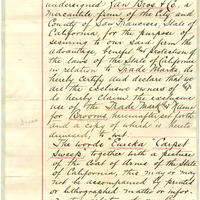 undersigned Zan Bros & Co, a
mercantile firm of the City and
County of San Francisco, State of
California, for the purpose of
securing to our said firm the
advantage, benefit and protection of
the laws of the State of California
in relation to Trade Marks do
hereby certify and declare that we
are the exclusive owners of and
do hereby claim the exclusive
use of the Trade Mark and Name
for Brooms hereinafter set forth
and a copy of which is hereto
annexed, to wit:
The words Eureka Carpet
Sweep together with a picture
of the Coat of Arms of the State
of California, this may or may
not be accompanied by printed
or lithographed matter or infor-